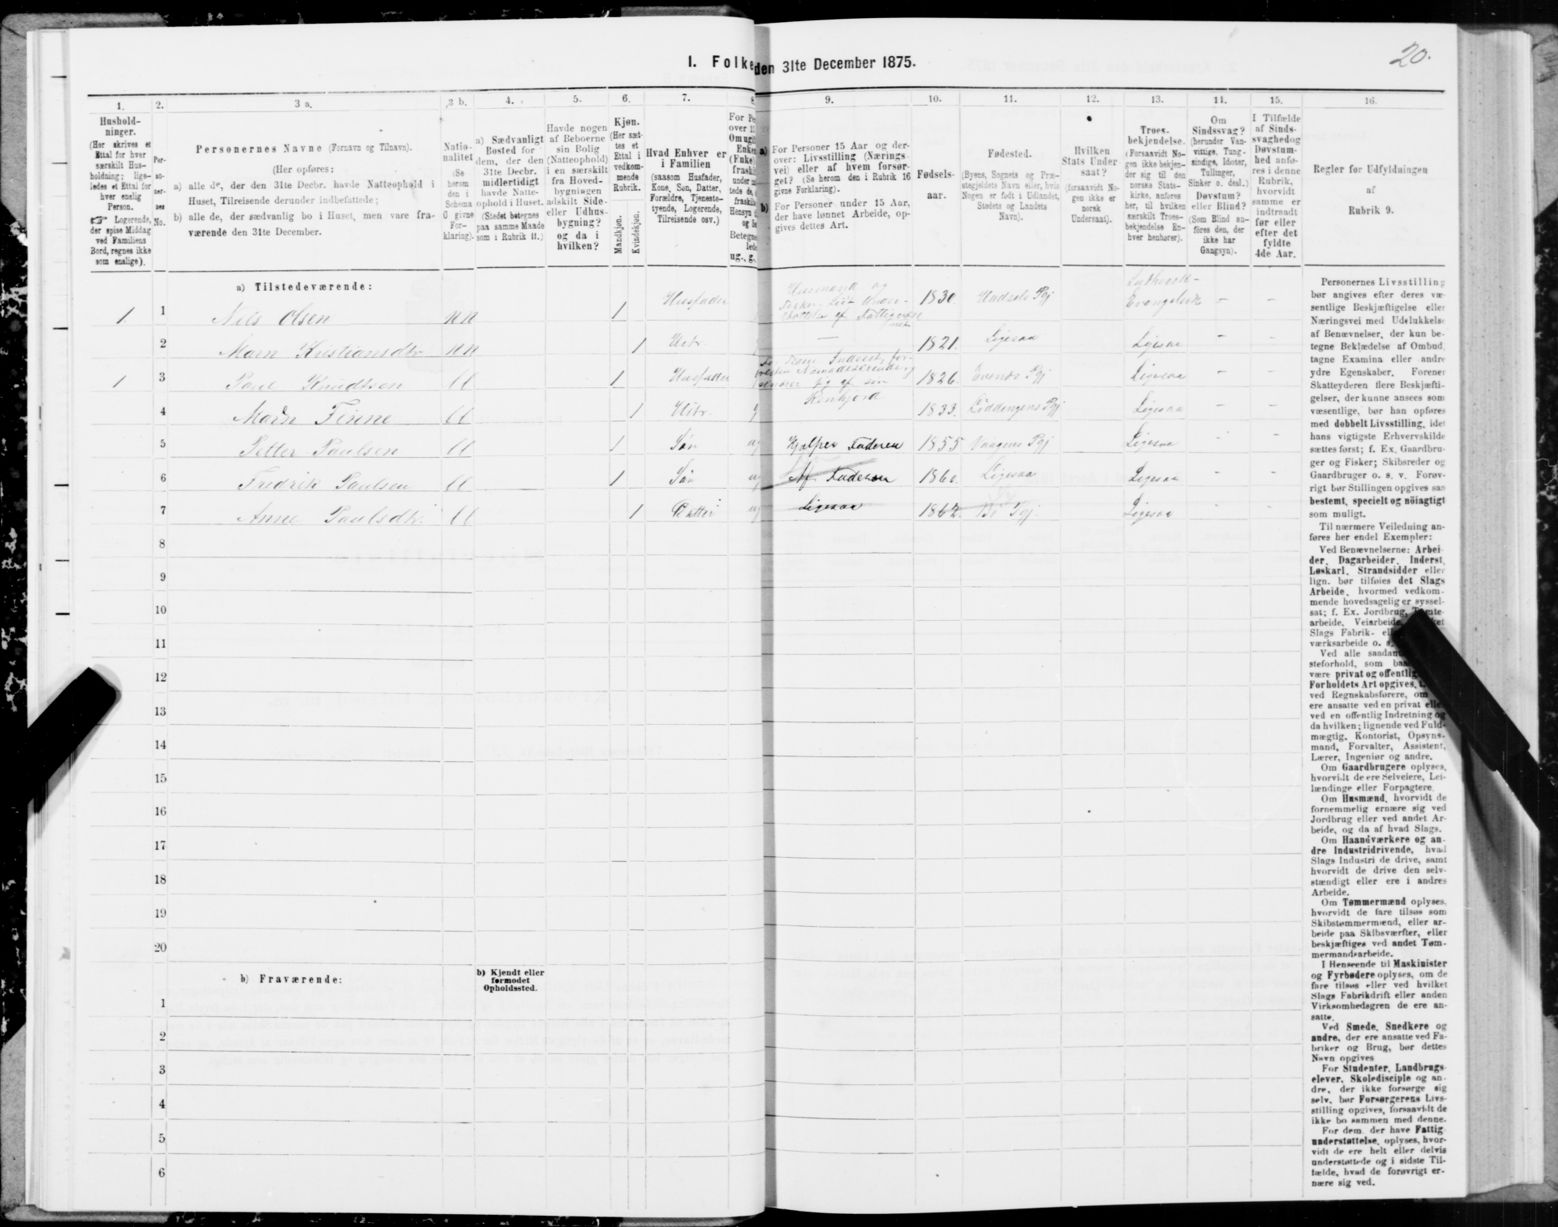 20.
I. Folke den 31te December 1875.
1. 2. 3 a. 3 b. 4. 5. 6. 7. 8. 9. 10. 11. 12. 13. 14. 15. 16.
Hushold-
ninger.
(Her skrives et
Ettal for hver
særskilt Hus-
holdning; lige-
ledes et Ettal for
hver enslig
Person.
☞ Logerende,
der spise Middag
ved Familiens
Bord, regnes ikke
som enslige).
Per-
so-
ner-
nes
No.
Personernes Navne (Fornavn og Tilnavn).
(Her opføres:
a) alle de, der den 31te Decbr. havde Natteophold i
Huset, Tilreisende derunder indbefattede;
b) alle de, der sædvanlig bo i Huset, men vare fra-
værende den 31te December.
Natio-
nalitet
(Se
herom
den i
Schema
O givne
For-
klaring).
a) Sædvanligt
Bosted for
dem, der den
31te Decbr.
midlertidigt
havde Natte-
ophold i Huset.
(Stedet betegnes
paa samme Maade
som i Rubrik 11.)
Havde nogen
af Beboerne
sin Bolig
(Natteophold)
i en særskilt
fra Hoved-
bygningen
adskilt Side-
eller Udhus-
bygning?
og da i
hvilken?
Kjøn.
(Her sæt-
tes et
Ettal i
vedkom-
mende
Rubrik.
Mandkjøn.
Kvindekjøn.
Hvad Enhver er
i Familien
(saasom Husfader,
Kone, Søn, Datter,
Forældre, Tjeneste-
tyende, Logerende,
Tilreisende osv.)
For Pe
over 15
Om ugi
Enke
(Fnke)
fraski
ug., g.,
a) For Personer 15 Aar og der-
over: Livsstilling (Nærings-
vei) eller af hvem forsør-
get? (Se herom den i Rubrik 16
givne Forklaring).
b) For Personer under 15 Aar,
der have lønnet Arbeide, op-
gives dettes Art.
Fødsels-
aar.
Fødested.
(Byens, Sognets og Præ-
stegjeldets Navn eller, hvis
Nogen er født i Udlandet,
Stedets og Landets
Navn).
Hvilken
Stats Under
saat?
(forsaavidt No-
gen ikke er
norsk
Undersaat).
Troes-
bekjendelse.
(Forsaavidt No-
gen ikke bekjen-
der sig til den
norske Stats-
kirke, anføres
her, til hvilken
særskilt Troes-
bekjendelse En-
hver henhører).
Om
Sindssvag?
(herunder Van-
vittige, Tung-
sindige, Idioter,
Tullinger,
Sinker o. desl.)
Døvstum?
eller Blind?
(Som Blind an-
føres den, der
ikke har
Gangsyn).
I Tilfælde
af Sinds-
svaghed og
Døvstum-
hed anfø-
res i denne
Rubrik,
hvorvidt
samme er
indtraadt
før eller
efter det
fyldte
4de Aar.
Regler for Udfyldningen
af
Rubrik 9.
a) Tilstedeværende:
1 1 Nils Olsen nn 1 Husfader Husmand og 1830 Hadsels Pgj Luthersk-Evangelisk - -
2 Maren Kristiansdtr nn 1 Hstr - 1821 Ligesaa Ligesaa - -
1 3 Paul Knudtsen ll 1 Husfader 1826 Evenæs Pgj Ligesaa - -
4 Maren Finne ll 1 Hstr g 1833. Løddingens Pgj Ligesaa - -
5 Petter Paulsen ll 1 Søn ug Hjælper Faderen 1855 Vaagens Pgj Ligesaa - -
6 Fredrik Paulsen ll 1 Søn ug Af Faderen 1860 Ligesaa Ligesaa - -
7 Anne Paulsdtr. ll 1 Datter ug Ligesaa 1862. Bø Pgj Ligesaa - -
8
9
10
11
12
13
14
15
16
17
18
19
20
b) Fraværende:
b) Kjendt eller
formodet
Opholdssted.
1
2
3
4
5
6
Personernes Livsstilling
bør angives efter deres væ-
sentlige Beskjæftigelse eller
Næringsvei med Udelukkelse
af Benævnelser, der kun be-
tegne Beklædelse af Ombud,
tagne Examina eller andre
ydre Egenskaber. Forener
Skatteyderen flere Beskjæfti-
gelser, der kunne ansees som
væsentlige, bør han opføres
med dobbelt Livsstilling, idet
hans vigtigste Erhvervskilde
sættes først; f. Ex. Gaardbru-
ger og Fisker; Skibsreder og
Gaardbruger o. s. v. Forøv-
rigt bør Stillingen opgives saa
bestemt, specielt og nøiagtigt
som muligt.
Til nærmere Veiledning an-
føres her endel Exempler:
Ved Benævnelserne: Arbei-
der, Dagarbeider, Inderst,
Løskarl, Strandsidder eller
lign. bør tilføies det Slags
Arbeide, hvormed vedkom-
mende hovedsagelig er syssel-
sat; f. Ex. Jordbrug,
arbeide, Veiarbeide,
Slags Fabrik-
værksarbeide o. s.
Ved alle saadan
steforhold, som
være privat og offentlig
Forholdets Art opgives,
ved Regnskabsførere, om
ere ansatte ved en privat eller
ved en offentlig Indretning og
da hvilken; lignende ved Fuld-
mægtig, Kontorist, Opsyns-
mand, Forvalter, Assistent,
Lærer, Ingeniør og andre.
Om Gaardbrugere oplyses,
hvorvidt de ere Selveiere, Lei-
lændinge eller Forpagtere.
Om Husmænd, hvorvidt de
fornemmelig ernære sig ved
Jordbrug eller ved andet Ar-
beide, og da af hvad Slags.
Om Haandværkere og an-
dre Industridrivende, hvad
Slags Industri de drive, samt
hvorvidt de drive den selv-
stændigt eller ere i andres
Arbeide.
Om Tømmermænd oplyses,
hvorvidt de fare tilsøs som
Skibstømmermænd, eller ar-
beide paa Skibsværfter, eller
beskjæftiges ved andet Tøm-
mermandsarbeide.
I Henseende til Maskinister
og Fyrbødere oplyses, om de
fare tilsøs eller ved hvilket
Slags Fabrikdrift eller anden
Virksomhedsgren de ere an-
satte.
Ved Smede, Snedkere og
andre, der ere ansatte ved Fa-
briker og Brug, bør dettes
Navn opgives
For Studenter, Landbrugs-
elever, Skoledisciple og an-
dre, der ikke forsørge sig
selv, bør Forsørgerens Livs-
stilling opgives, forsaavidt de
ikke bo sammen med denne.
For dem, der have Fattig-
understøttelse, oplyses, hvor-
vidt de ere helt eller delvis
understøttede og i sidste Til-
fælde, hvad de forøvrigt er-
nære sig ved.